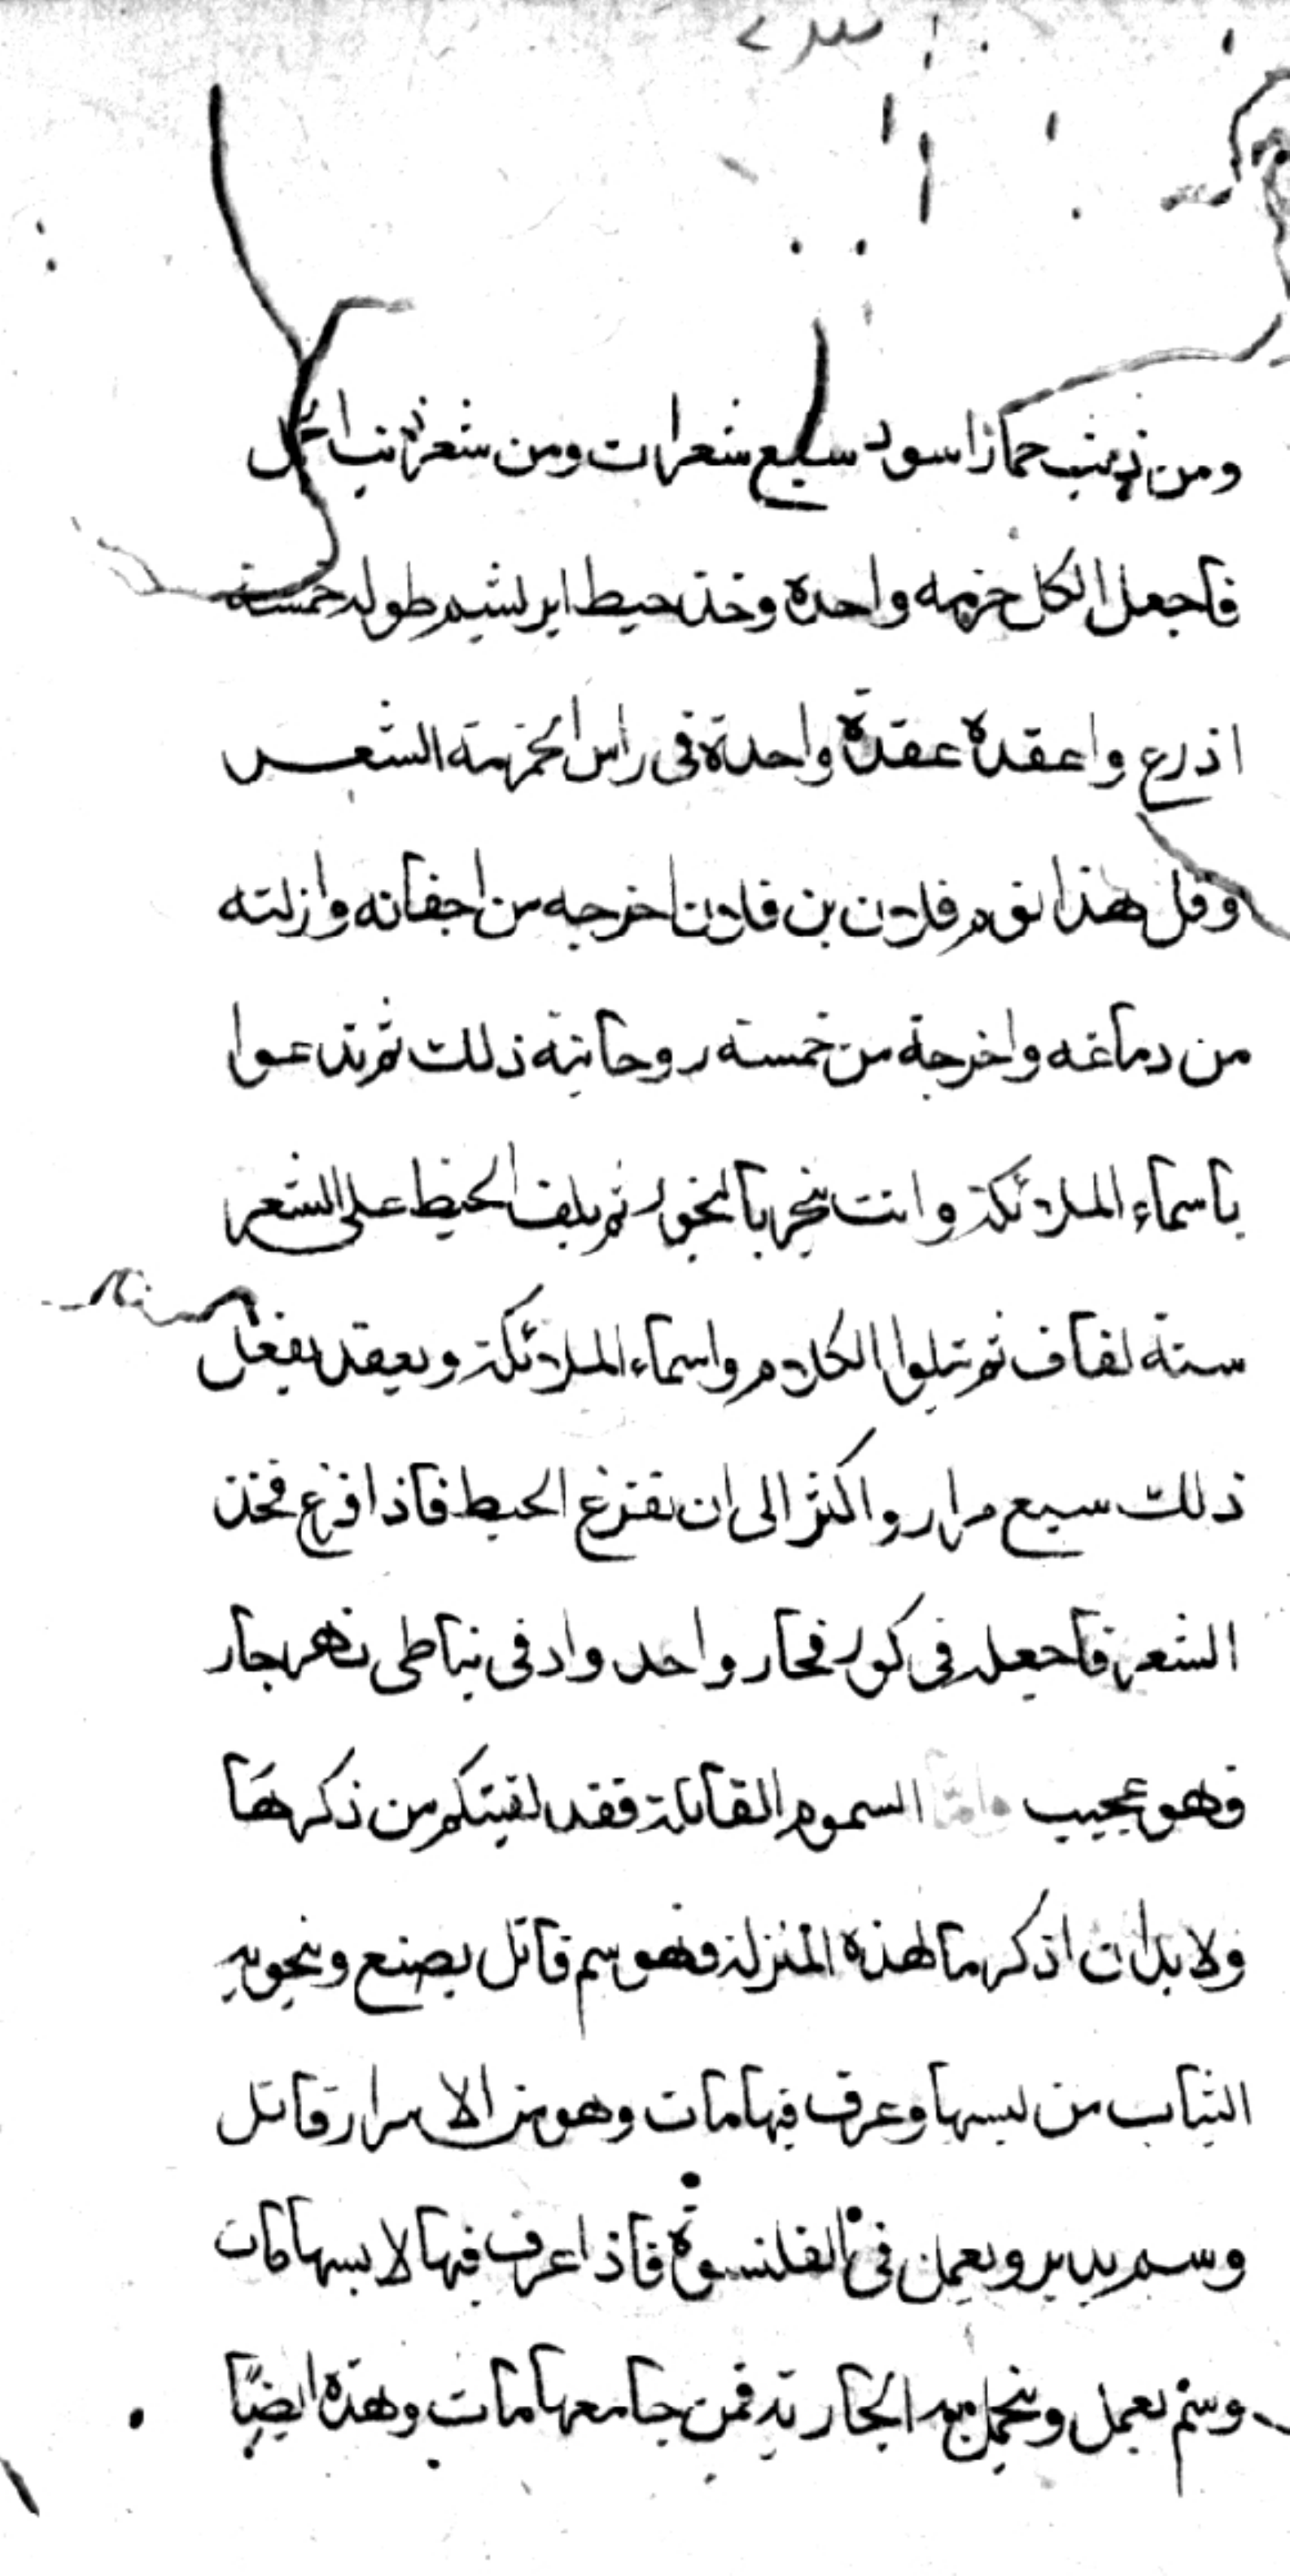 ومن ذنب حمار اسود سبع شعرات ومن شعر ذنب
فاجعل الكل حزمه واحدة وخذ خيط ابريشيم طوله خمسة
اذرع واعقده عقدة واحدة في راس الحزمة الشعر
وقل هذا نوم فلان بن فلان اخرجه من اجفانه وازلته
من دماغه واخرجة من خمسة روحانية ذلك ثم تدعوا
باسماء الملائكة وانت تبخر بالبخور ثم يلف الخيط على الشعر
ستة لفاف ثم تتلوا الكلام واسماء الملائكة وبعقد يفعل
ذلك سبع مرار واكثر الى ان تفزغ الخيط فاذا افزع فخذ
الشعر فاجعله في كوز فخار واحد وادفى شاطى نهر جار
فهو عجيب وامّا السموم القاتلة فقد لقيتكم من ذكرها
ولا بد ان اذكر ما لهذه المنزلة فهو سم قاتل يصنع وينجو به
الثياب من لبسها وعرق فيها مات وهو من الاسرار قاتل
وسم يدبر ويعمل في القلنسوة فاذا عرف فيها لابسها مات
وسم يعمل ويتحمل به الجارية فمن جامعها مات وهذه ايضًا